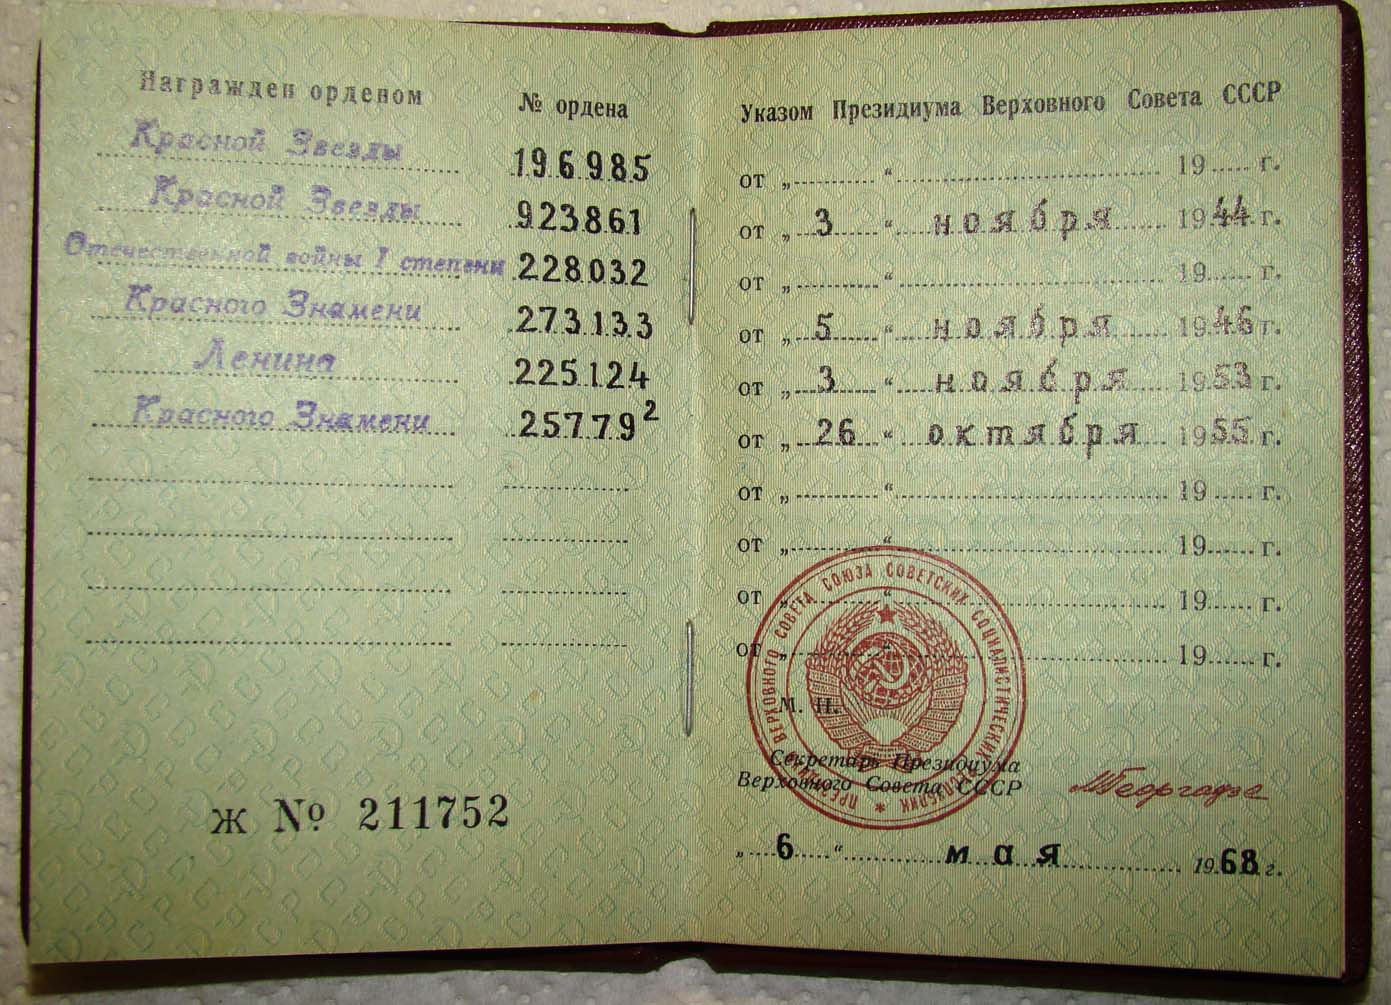 Награжден орденом № ордена
Красной Звезды 196985
Красной Звезды 923861
Отечественной войны I степени 228032
Красного Знамени 273133
Ленина 225124
Красного Знамени 257792
Ж № 211752
Указом Президиума Верховного Совета СССР
от „ “ 19 г.
от „ 3 “ ноября 1944 г.
от „ “ 19 г.
от „ 5 “ ноября 1946 г.
от „ 3 “ ноября 1953 г.
от „ 26 “ октября 1955 г.
от „ “ 19 г.
от „ “ 19 г.
от „ “ 19 г.
от „ “ 19 г.
М. П.
ПРЕЗИДИУМ ВЕРХОВНОГО СОВЕТА СОЮЗА СОВЕТСКИХ СОЦИАЛИСТИЧЕСКИХ РЕСПУБЛИК *
Секретарь Президиума
Верховного Совета СССР МГеоргадзе
„ 6 “ мая 1968 г.